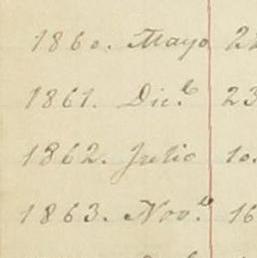 1860. Mayo 22
1861. Dic.e 23
1862. Julio 10.
1863. Nov.e 16